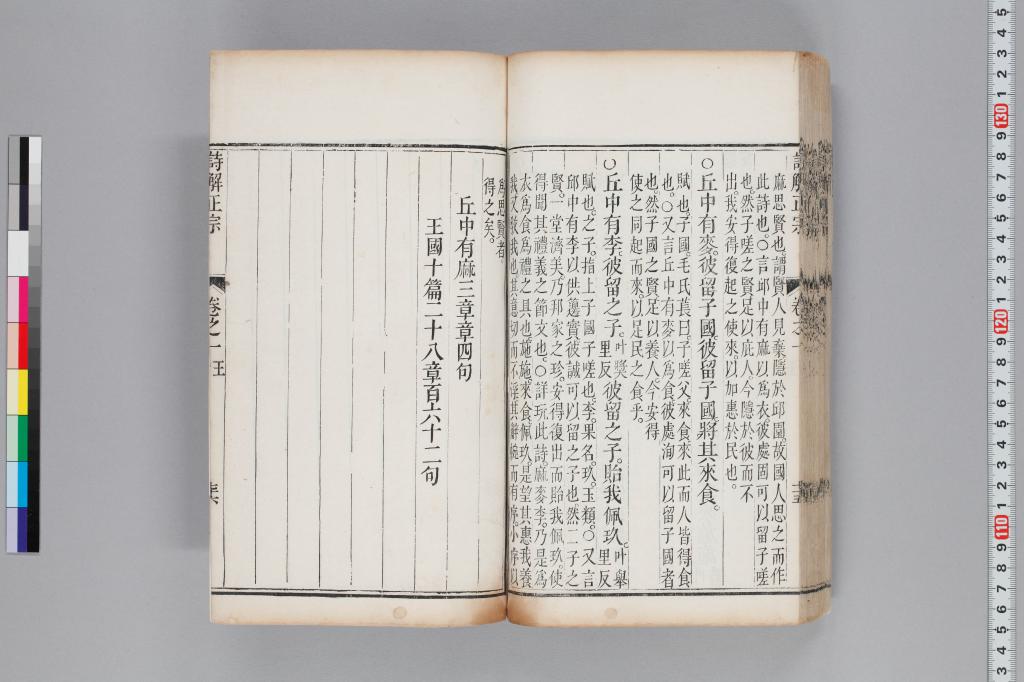 麻思賢也謂賢人見棄隱於邱園故國人思之而作
此詩也。○言邱中有麻以爲衣彼處固可以留子嗟
也然子嗟之賢足以庇人今隱於彼而不
出。我安得復起之使來。以加惠於民也。
○丘中有麥。彼留子國。彼留子國。將其來食。
賦也。子國。毛氏萇曰。子嗟父。來食來此而人皆得食
也。○又言丘中有麥以爲食彼處洵可以留子國者
也。然子國之賢足以養人。今安得
使之同起而來。以足民之食乎。
○丘中有李。彼留之子。叶奬里反彼留之子。貽我佩玖。叶舉里反
賦也。之子。指上子國子嗟也。李。果名。玖。玉類。○又言
邱中有李以供籩實。彼誠可以留之子也然二子之
賢。一堂濟美。乃邦家之珍。安得復出而貽我佩玖。使
得聞其禮義之節文也。○詳玩此詩麻麥李。乃是爲
衣爲食爲禮之具也。施施。來食佩玖。是望其惠我養
我又敎我也其意切而不淫其辭婉而有序。小序以
爲思賢者。
得之矣。
丘中有麻三章章四句
王國十篇二十八章百六十二句
詩解正宗
卷之一
王
詩解正宗
卷之一